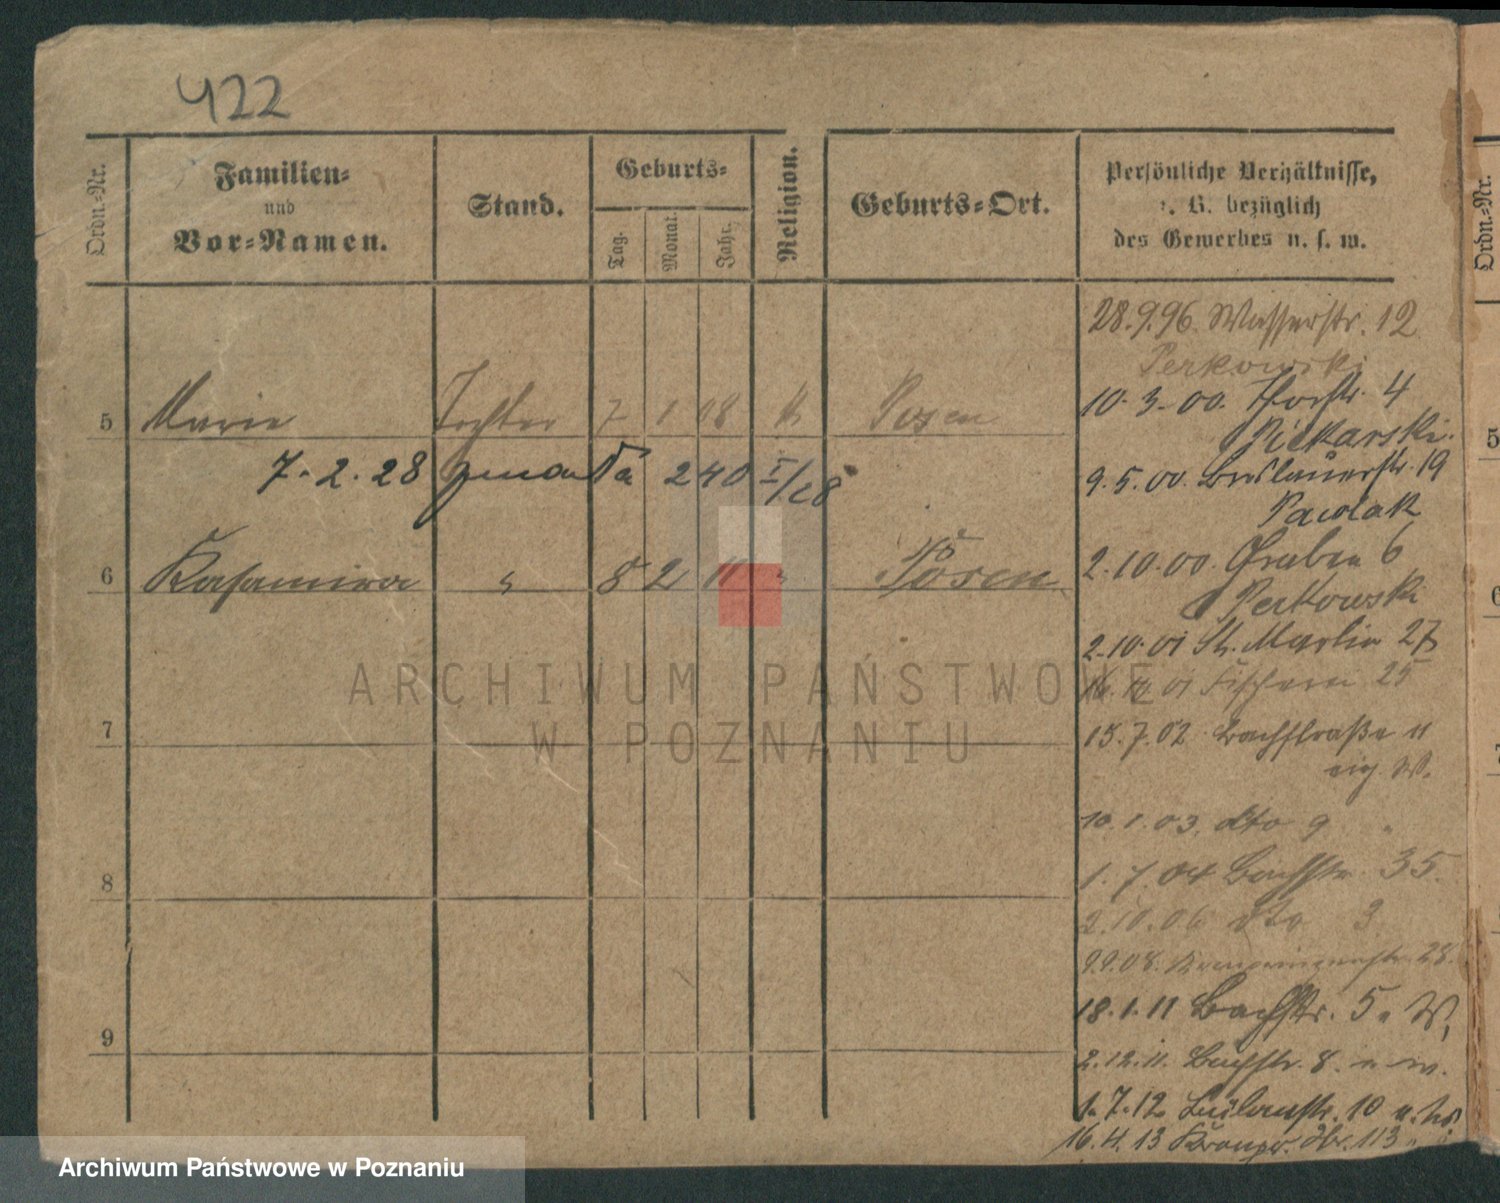 422
Ordn.-Nr.
Familien-
und
Vor-Namen.
Stand.
Geburts-
Tag.
Monat.
Jahr.
Religion.
Geburts-Ort.
Persönliche Verhältnisse,
z. B. bezüglich
des Gewerbes u. s. w.
5 Marie Tochter 7 1 08 k Posen
7.2.28 zmarła 240 I/28
6 Kasamira " 8 2 11 " Posen
7
8
9
28.9.96 Wasserstr. 12
Perkowski
10.3.00. Thorstr. 4
Piekarski
9.5.00. Breslauerstr. 19
Pawlak
2.10.00. Graben 6
Perkowski
2.10.01 St. Martin 27
01 Fischerei 25
15.7.02 Bachstraße 11
eig W.
10.1.03. dto 9 "
1.7.04 Bachstr. 35.
2.10.06 dto 3
9.9.08. 28.
18.1.11 Bachstr. 5 " W.
2.12.11. Bachstr. 8.
1.7.12 10
16.4.13 Kronpr. Str. 113
Ordn.-Nr.
5
6
ARCHIWUM PAŃSTWOWE
W POZNANIU
Archiwum Państwowe w Poznaniu